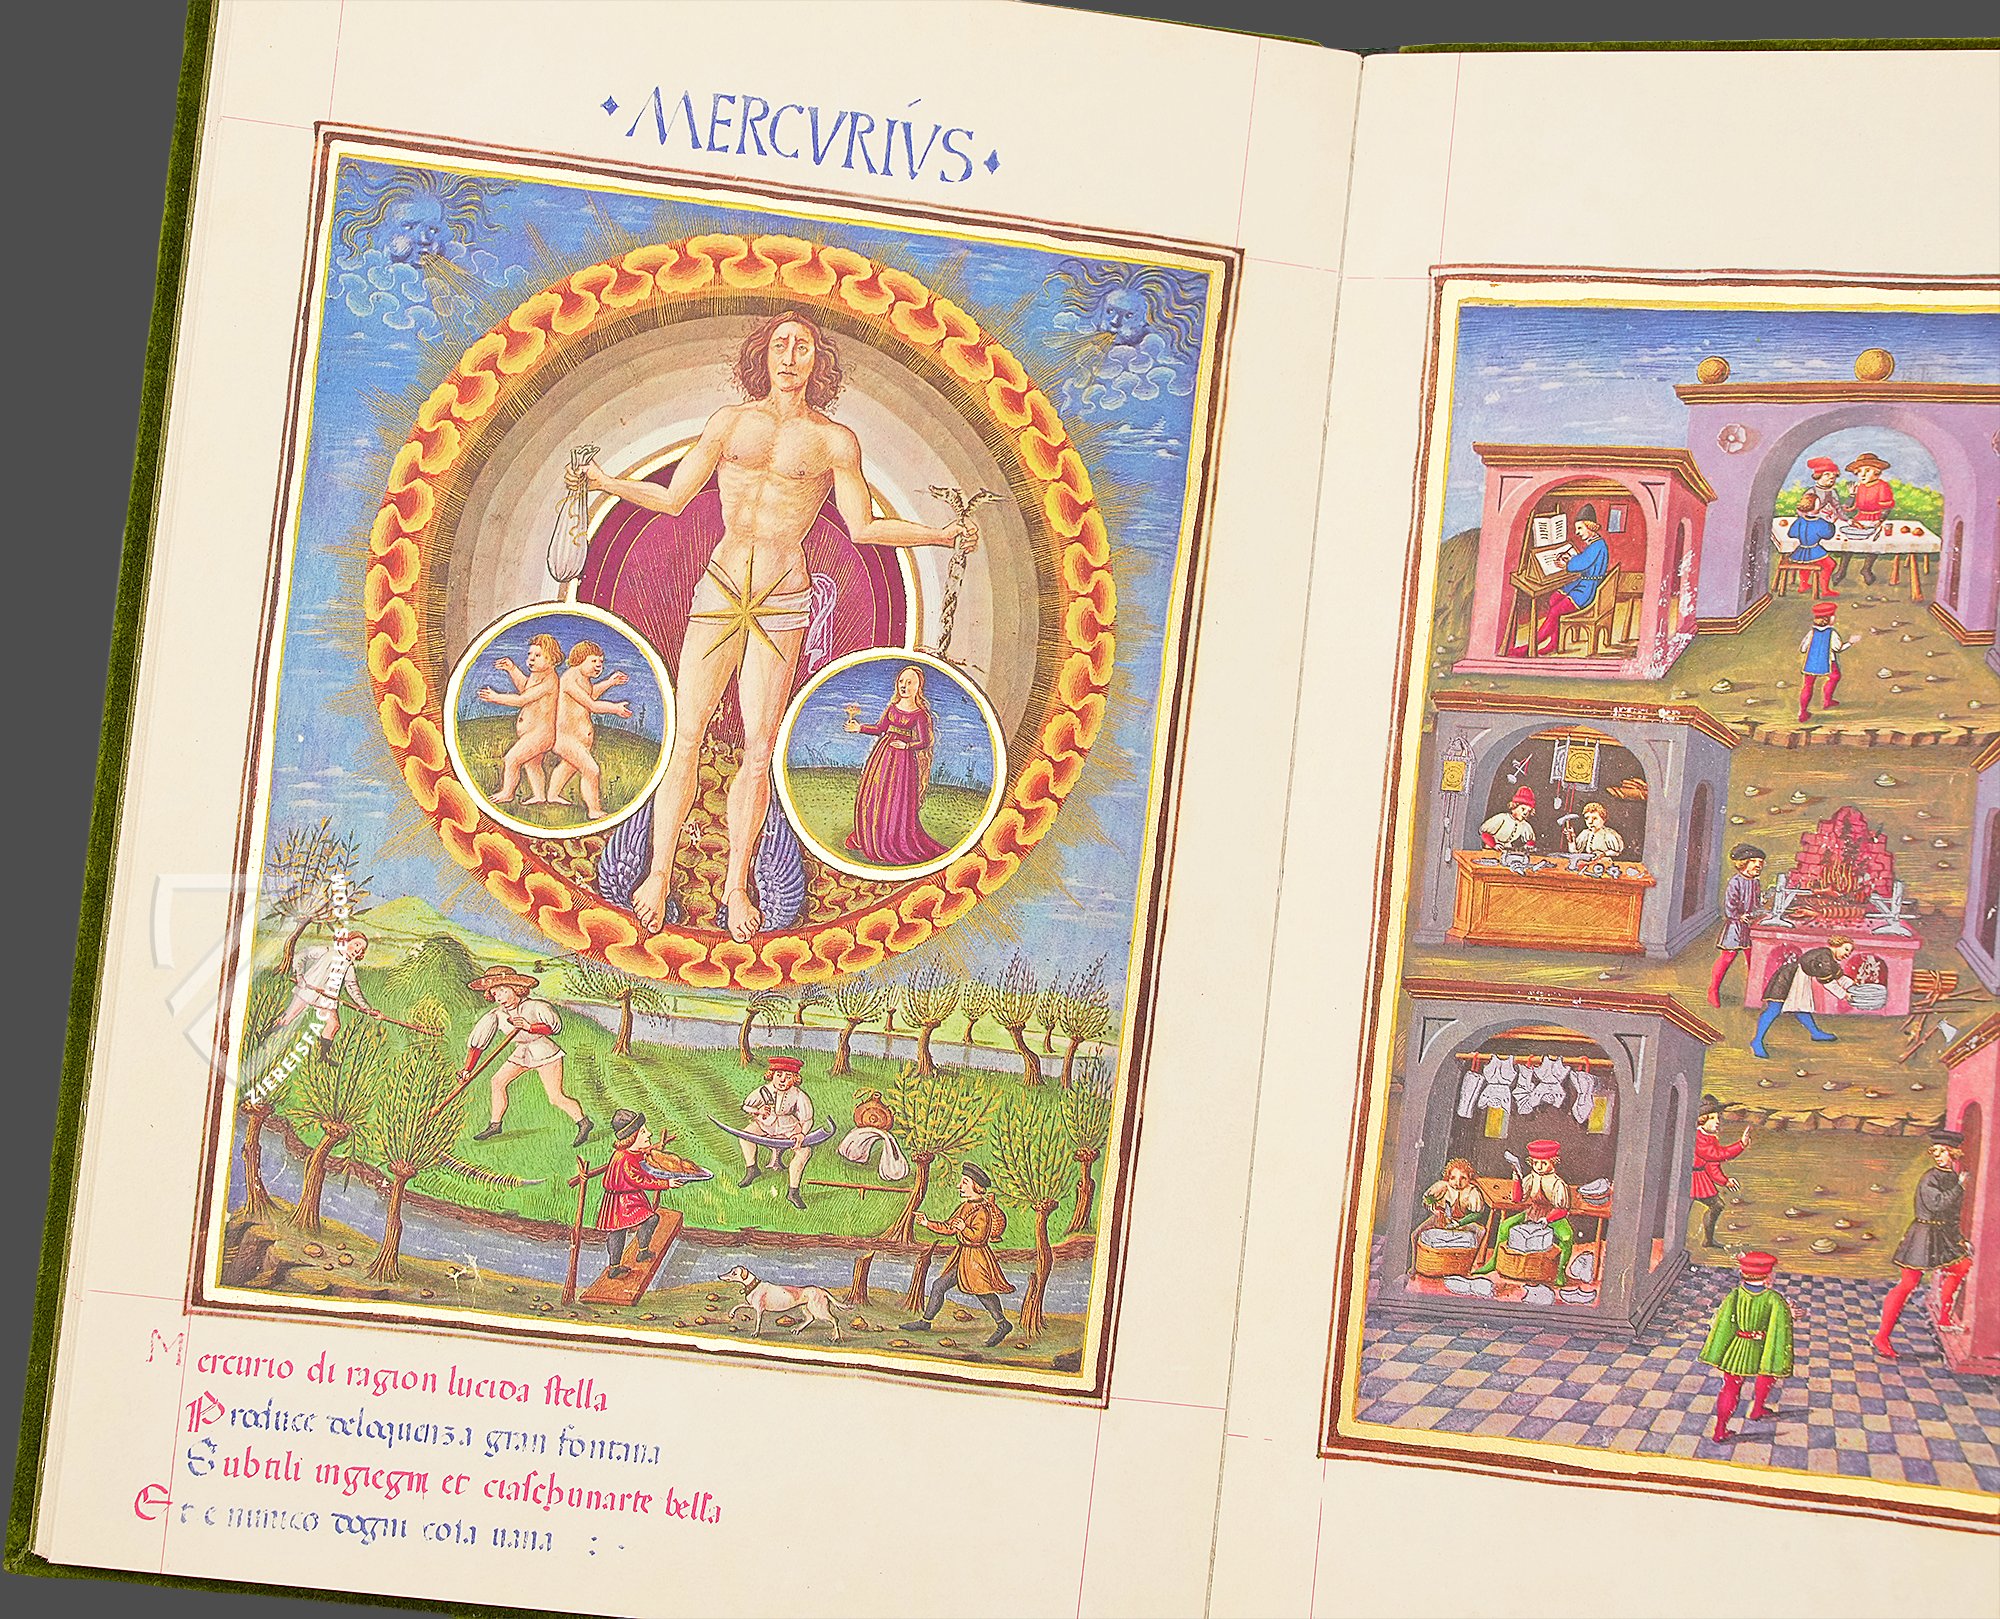 MERCVRIVS
Mercurio di ragion lucida stella
Produce deloquenza gran fontana
Subtili ingiegni et ciaschunarte bella
Et e nimico dogni cosa uana
ZIEREISFACSIMILES.COM